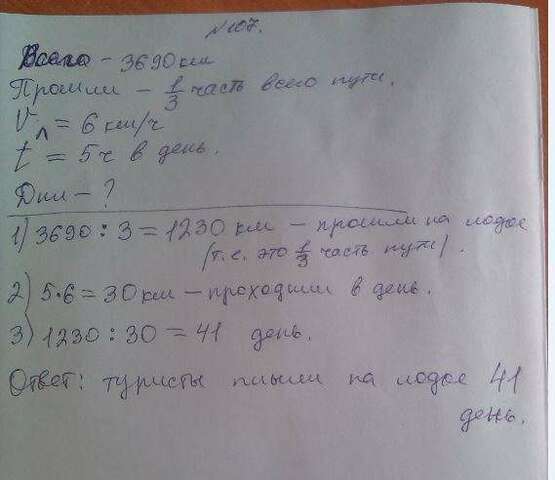 №107.
Всего - 3690 км
Прошли - 1/3 часть всего пути.
Vл = 6 км/ч
t = 5 ч в день.
Дни - ?
1) 3690 : 3 = 1230 км - прошли на лодке
(т.е. это 1/3 часть пути).
2) 5·6 = 30 км - проходили в день.
3) 1230 : 30 = 41 день.
Ответ: туристы плыли на лодке 41
день.